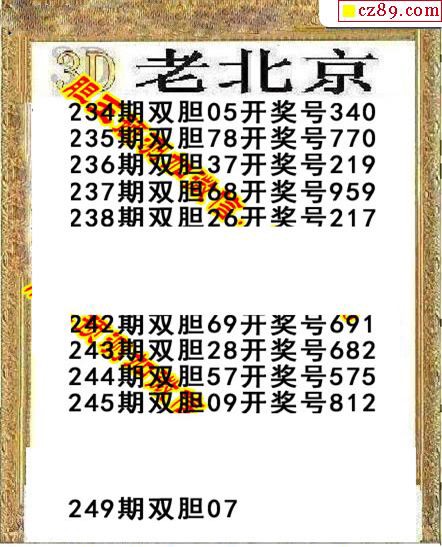 cz89.com
3D 老北京
234期双胆05开奖号340
235期双胆78开奖号770
236期双胆37开奖号219
237期双胆68开奖号959
238期双胆26开奖号217
242期双胆69开奖号691
243期双胆28开奖号682
244期双胆57开奖号575
245期双胆09开奖号812
249期双胆07